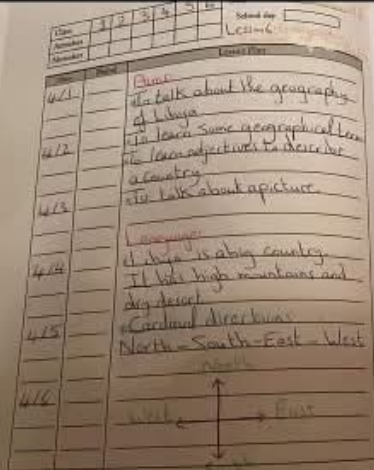 Class 1 2 3 4 5 6
Attendees
Absentees
School day
Lesson 6
Lesson Plan
Aims
To talks about the geography
of Libya
4/1
To learn some geographical
4/2
To learn adjectives to describe
a country
To talk about a picture
4/3
Language:
Libya is a big country.
4/4
It has high mountains and
dry desert
Cardinal directions
4/5
North - South - East - West
North
4/6
West East